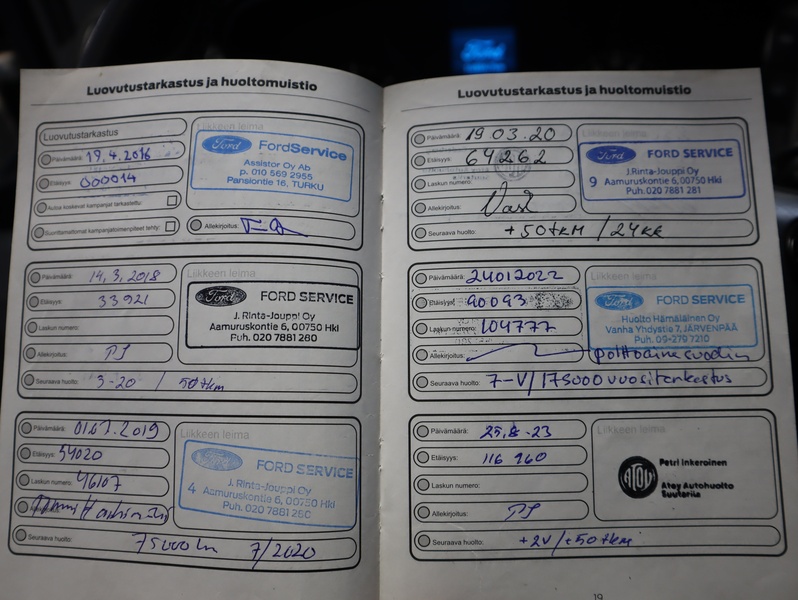 Ford
Luovutustarkastus ja huoltomuistio
Luovutustarkastus
Päivämäärä: 19.4.2016
Etäisyys: 000014
Autoa koskevat kampanjat tarkastettu:
Suorittamattomat kampanjatoimenpiteet tehty:
Liikkeen leima
Ford FordService
Assistor Oy Ab
p. 010 569 2955
Pansiontie 16, TURKU
Allekirjoitus:
Päivämäärä: 14.3.2018
Etäisyys: 33921
Laskun numero:
Allekirjoitus: PJ
Seuraava huolto: 3-20 / 50tkm
Liikkeen leima
Ford FORD SERVICE
J. Rinta-Jouppi Oy
Aamuruskontie 6, 00750 Hki
Puh. 020 7881 280
Päivämäärä:
Etäisyys: 54020
Laskun numero: 46107
Seuraava huolto: 75000km 7/2020
Liikkeen leima
Ford FORD SERVICE
4 J. Rinta-Jouppi Oy
Aamuruskontie 6, 00750 Hki
Puh. 020 7881 280
Luovutustarkastus ja huoltomuistio
Päivämäärä: 19.03.20
Etäisyys: 64262
Laskun numero:
Allekirjoitus:
Seuraava huolto: +50tkm / 24kk
Liikkeen leima
Ford FORD SERVICE
9 J.Rinta-Jouppi Oy
Aamuruskontie 6, 00750 Hki
Puh. 020 7881 281
Päivämäärä: 24012022
Etäisyys: 90093
Laskun numero: 104777
Allekirjoitus: polttoainesuodin
Seuraava huolto: 7-V/175000 vuositarkastus
Liikkeen leima
Ford FORD SERVICE
Huolto Hämäläinen Oy
Vanha Yhdystie 7, JÄRVENPÄÄ
Puh. 09-279 7210
Päivämäärä: 25.8-23
Etäisyys: 116 160
Laskun numero:
Allekirjoitus: PJ
Seuraava huolto: +2V/+50tkm
Liikkeen leima
ATOY
Petri Inkeroinen
Atoy Autohuolto
Suutarila
19